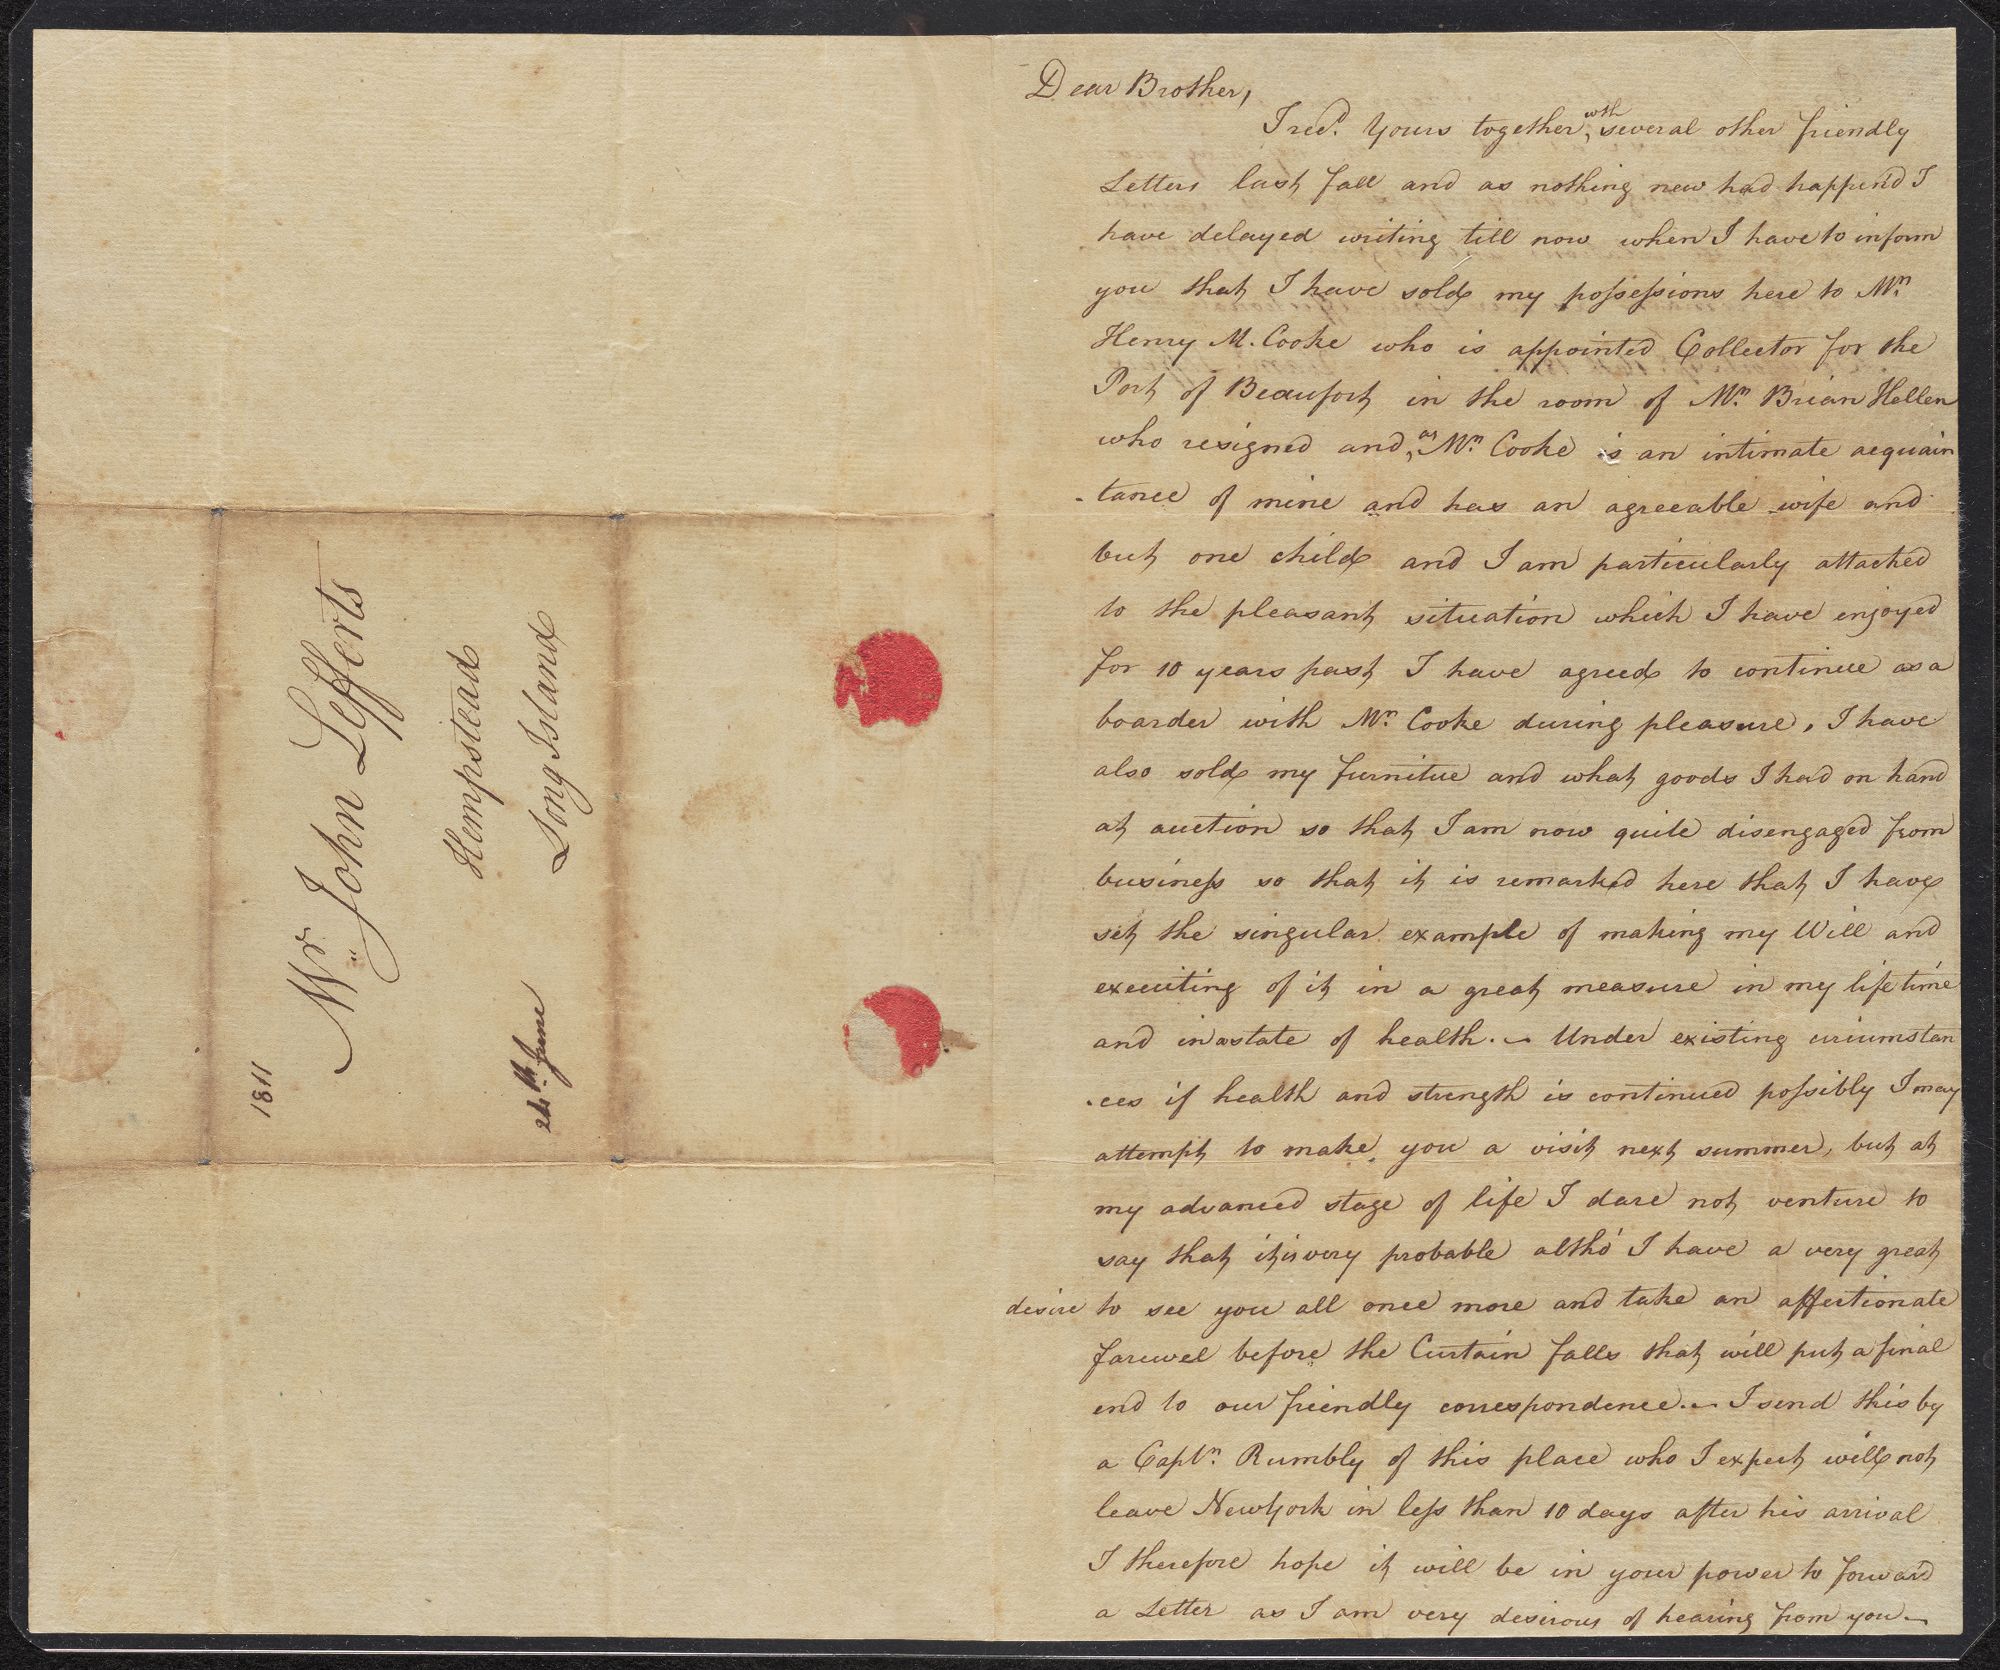 1811
Mr. John Lefferts
Hempstead
Long Island
24th June
Dear Brother,
I recd. Yours together wth several other friendly
Letters last fall and as nothing new had happen'd I
have delayed writing till now when I have to inform
you that I have sold my possessions here to Mr.
Henry M. Cooke who is appointed Collector for the
Port of Beaufort in the room of Mr. Brian Hellen
who resigned and, as Mr. Cooke is an intimate acquain
-tance of mine and has an agreeable wife and
but one child and I am particularly attached
to the pleasant situation which I have enjoyed
for 10 years past I have agreed to continue as a
boarder with Mr. Cooke during pleasure, I have
also sold my furnitue and what goods I had on hand
at auction so that I am now quite disengaged from
business so that it is remarked here that I have
set the singular example of making my Will and
execiting of it in a great measure in my life time
and in a state of health. - Under existing circumstan
-ces if health and strength is continued possibly I may
attempt to make you a visit next summer, but at
my advanced stage of life I dare not venture to
say that it is very probable altho' I have a very great
desire to see you all once more and take an affectionate
farewel before the Curtain falls that will put a final
end to our friendly correspondence. - I send this by
a Captn. Rumbly of this place who I expect will not
leave New York in less than 10 days after his arrival
I therefore hope it will be in your power to forward
a Letter as I am very desirous of hearing from you -